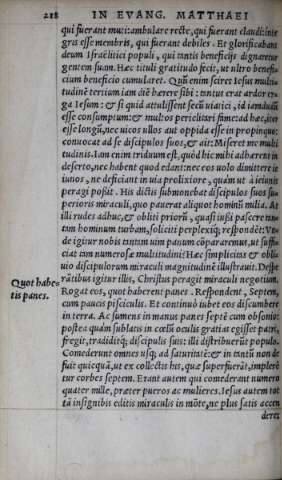 218 IN EVANG. MATTHAEI
qui fuerant muti: ambulare recte, qui fuerant claudi: inte
gras esse membris, qui fuerant debiles. Et glorificabant
deum Israëlitici populi, qui tantis beneficijs dignaretur
gentem suam. Hæc tituli gratitudo fecit, ut ultro benefi⸗
cium beneficio cumularet. Quū enim sciret Iesus multi⸗
tudinē tertium iam diē hærere sibi: tantus erat ardor er⸗
ga Iesum: & si quid attulissent secū uiatici, id iamdudū
esse consumptum: & multos periclitari fame: ad hæc, iter
esse longū, nec uicos ullos aut oppida esse in propinquo:
conuocat ad se discipulos suos, & ait: Miseret me multi
tudinis. Iam enim triduum est, quòd hic mihi adhærent in
deserto, nec habent quod edant: nec eos uolo dimittere ie
iunos, ne deficiant in uia prolixiore, quàm ut à ieiunis
peragi possit. His dictis submonebat discipulos suos su⸗
perioris miraculi, quo pauerat aliquot hominū milia. At
illi rudes adhuc, & obliti priorū, quasi iussi pascere tan⸗
tam hominum turbam, soliciti perplexiq; respondēt: Vn⸗
de igitur nobis tantum uim panum cōpararemus, ut suffi⸗
ciat tam numerosæ multitudini? Hæc simplicitas & obli⸗
uio discipulorum miraculi magnitudinē illustrauit. Despe
Quot habe⸗ rātibus igitur illis, Christus peragit miraculi negotium.
tis panes. Rogat eos, quot haberent panes. Respondent, Septem,
cum paucis pisciculis. Et continuò iubet eos discumbere
in terra. Ac sumens in manus panes septē cum obsonio:
postea quàm sublatis in cœlū oculis gratias egisset patri,
fregit, tradiditq; discipulis suis: illi distribuerūt populo.
Comederunt omnes usq; ad saturitatē: & in tantū non de
fuit quicquā, ut ex collectis his, quæ superfuerāt, impleren
tur corbes septem. Erant autem qui comederant numero
quater mille, præter pueros ac mulieres. Iesus autem tot
tā insignibus editis miraculis in mōte, nec plus satis accen
deret